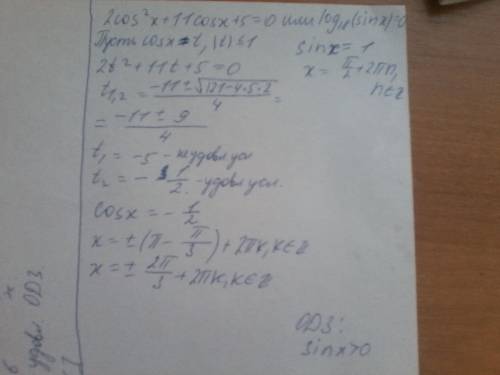 2cos²x+11cosx+5=0 или log₁₈(sinx)=0
Пусть cosx=t, |t|≤1
sinx=1
2t²+11t+5=0
x=π/2+2πn,
n∈z
t₁,₂=(-11±√(121-4·5·2))/4=
=(-11±9)/4
t₁=-5-неудовл усл
t₂=-1/2-удовл усл.
cosx=-1/2
x=±(π-π/3)+2πk,k∈z
x=±2π/3+2πk,k∈z
ОДЗ:
sinx>0
удовл. ОДЗ